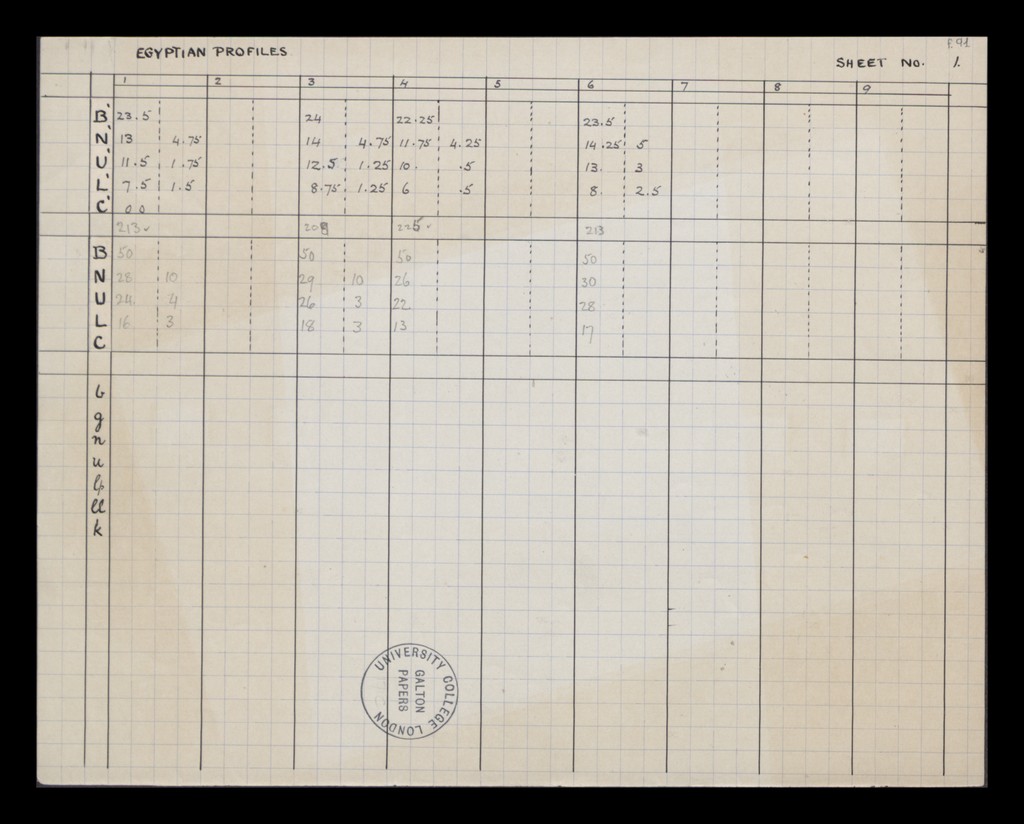 f. 91
EGYPTIAN PROFILES
SHEET No. 1.
1 2 3 4 5 6 7 8 9
B' 23.5 24 22.25 23.5
N' 13 4.75 14 4.75 11.75 4.25 14.25 5
U' 11.5 1.75 12.5 1.25 10. .5 13. 3
L' 7.5 1.5 8.75 1.25 6 .5 8. 2.5
C' 0 0
213 225 213
B 50 50 50 50
N 28 10 29 10 26 30
U 24 4 26 3 22 28
L 16 3 18 3 13 17
C
b
g
n
u
lp
ll
k
UNIVERSITY COLLEGE LONDON
GALTON
PAPERS